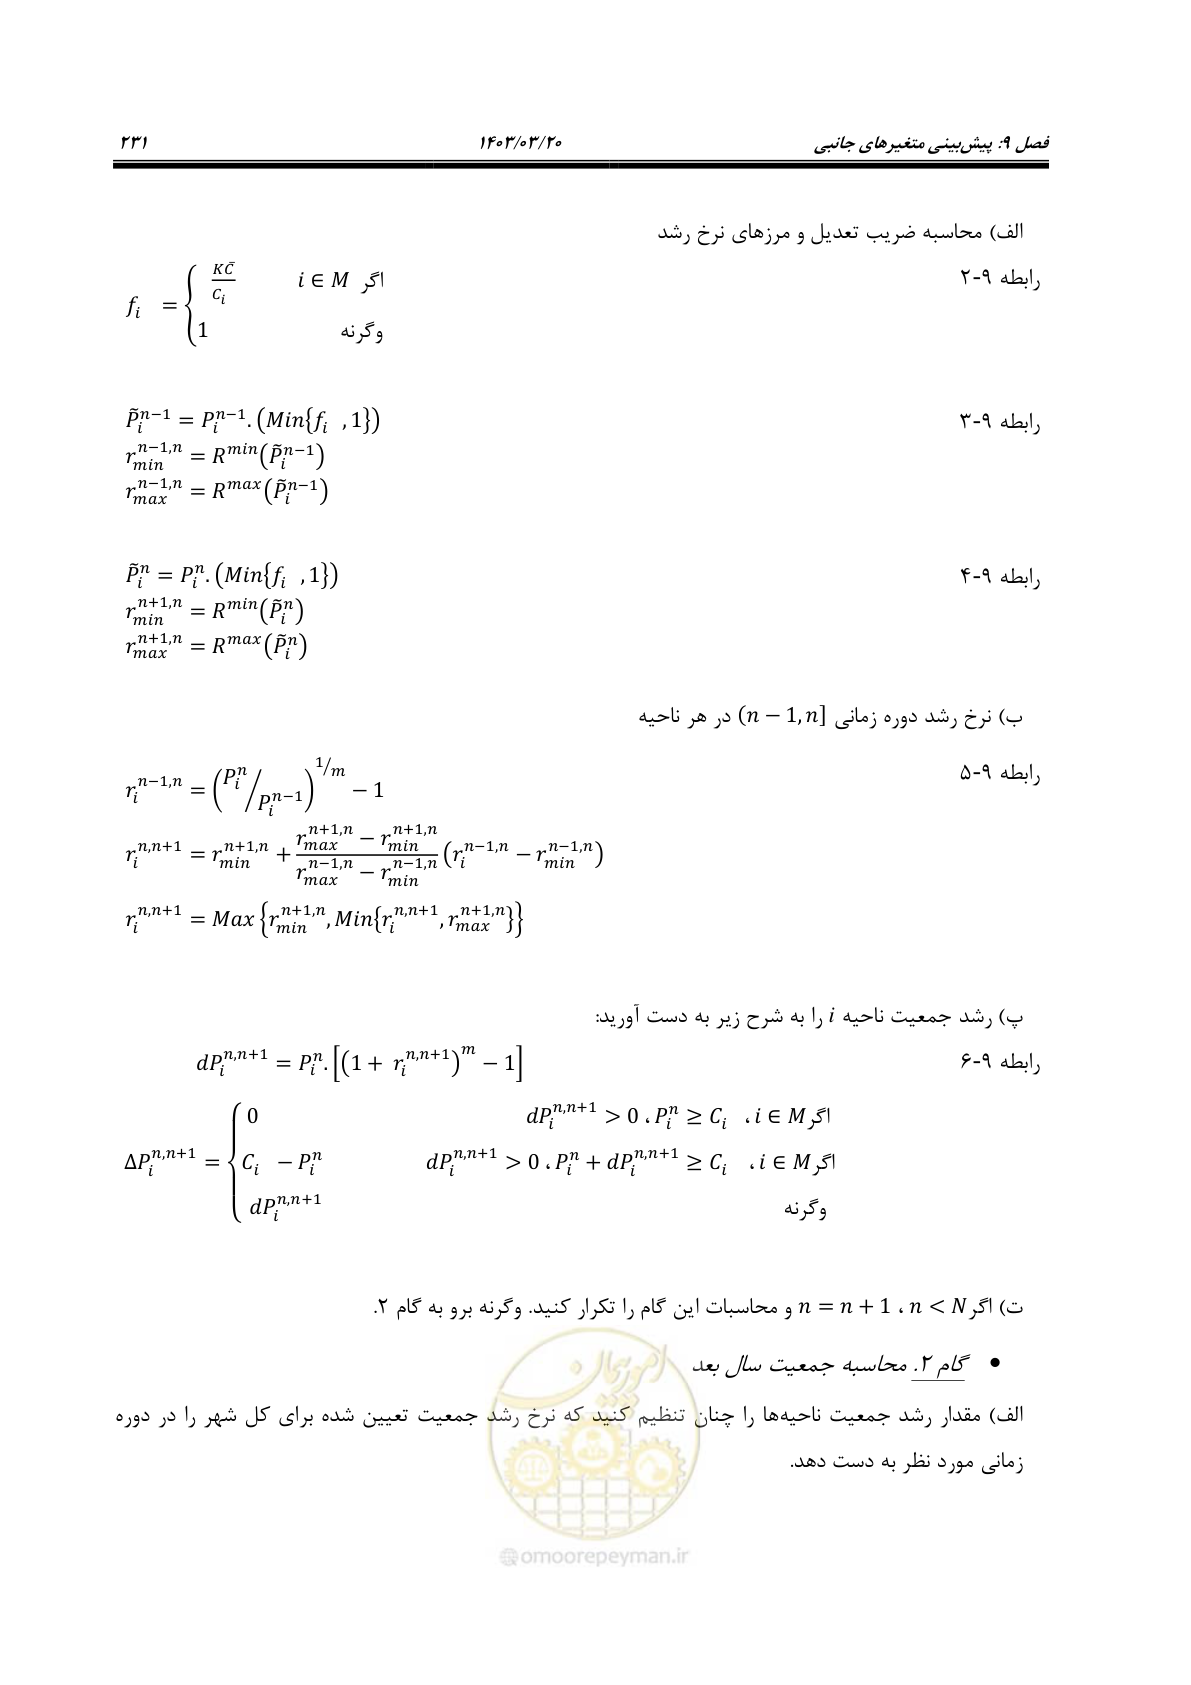 فصل ۹: پیش‌بینی متغیرهای جانبی ۱۴۰۳/۰۳/۲۰ ۲۳۱
الف) محاسبه ضریب تعدیل و مرزهای نرخ رشد
رابطه ۹-۲
f_i = { KC̄/C_i اگر i ∈ M
1 وگرنه
رابطه ۹-۳
P̃_i^{n−1} = P_i^{n−1}.(Min{f_i , 1})
r_{min}^{n−1,n} = R^{min}(P̃_i^{n−1})
r_{max}^{n−1,n} = R^{max}(P̃_i^{n−1})
رابطه ۹-۴
P̃_i^n = P_i^n.(Min{f_i , 1})
r_{min}^{n+1,n} = R^{min}(P̃_i^n)
r_{max}^{n+1,n} = R^{max}(P̃_i^n)
ب) نرخ رشد دوره زمانی (n − 1, n] در هر ناحیه
رابطه ۹-۵
r_i^{n−1,n} = (P_i^n/P_i^{n−1})^{1/m} − 1
r_i^{n,n+1} = r_{min}^{n+1,n} + (r_{max}^{n+1,n} − r_{min}^{n+1,n})/(r_{max}^{n−1,n} − r_{min}^{n−1,n}) (r_i^{n−1,n} − r_{min}^{n−1,n})
r_i^{n,n+1} = Max {r_{min}^{n+1,n}, Min{r_i^{n,n+1}, r_{max}^{n+1,n}}}
پ) رشد جمعیت ناحیه i را به شرح زیر به دست آورید:
رابطه ۹-۶
dP_i^{n,n+1} = P_i^n.[(1 + r_i^{n,n+1})^m − 1]
ΔP_i^{n,n+1} = { 0 اگر i ∈ M، P_i^n ≥ C_i، dP_i^{n,n+1} > 0
C_i − P_i^n اگر i ∈ M، P_i^n + dP_i^{n,n+1} ≥ C_i، dP_i^{n,n+1} > 0
dP_i^{n,n+1} وگرنه
ت) اگر n < N، n = n + 1 و محاسبات این گام را تکرار کنید. وگرنه برو به گام ۲.
• گام ۲. محاسبه جمعیت سال بعد
الف) مقدار رشد جمعیت ناحیه‌ها را چنان تنظیم کنید که نرخ رشد جمعیت تعیین شده برای کل شهر را در دوره
زمانی مورد نظر به دست دهد.
امور پیمان
@omoorepeyman.ir